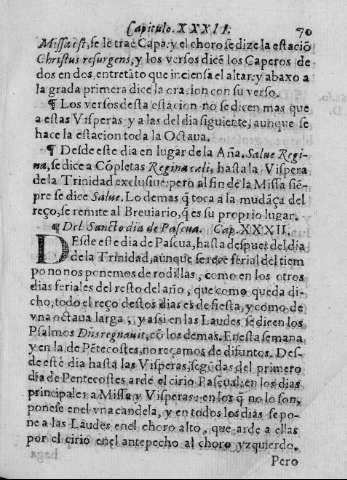 Capitulo. XXXII. 70
Missa est, se le trae Capa: y el choro se dize la estaciõ
Christus resurgens, y los versos dicẽ los Caperos de
dos en dos, entretãto que inciensa el altar: y abaxo a
la grada primera dice la oracion con su verso.
¶ Los versos desta estacion no se dicen mas que
a estas Visperas y a las del dia siguiente, aunque se
hace la estacion toda la Octava.
¶ Desde este dia en lugar de la Aña. Salue Regi-
na, se dice a Cõpletas Regina celi, hasta la Vispera
de la Trinidad exclusiue: pero al fin de la Missa siẽ-
pre se dice Salue. Lo demas q̃ toca a la mudãça del
reço, se remite al Breuiario, q̃ es su proprio lugar.
¶ Del Sancto dia de Pascua. Cap. XXXII.
DEsde este dia de Pascua, hasta despues del dia
de la Trinidad, aunque se reçe ferial del tiem
po no nos ponemos de rodillas, como en los otros
dias feriales del resto del año, que como queda di-
cho, todo el reço destos dias es de fiesta, y como de
vna octava larga, y assi en las Laudes se dicen los
Psalmos Dñs regnauit, cõ los demas. En esta semana
y en la de Pẽtecostes, no reçamos de difuntos. Des-
de este dia hasta las Visperas, segũdas del primero
dia de Pentecostes arde el cirio Pascual, en los dias
principales a Missa y Visperas: en los q̃ no lo son,
ponese en el vna candela, y en todos los dias se po-
ne a las Laudes en el choro alto, que arde a ellas
por el cirio en el antepecho al choro yzquierdo.
Pero